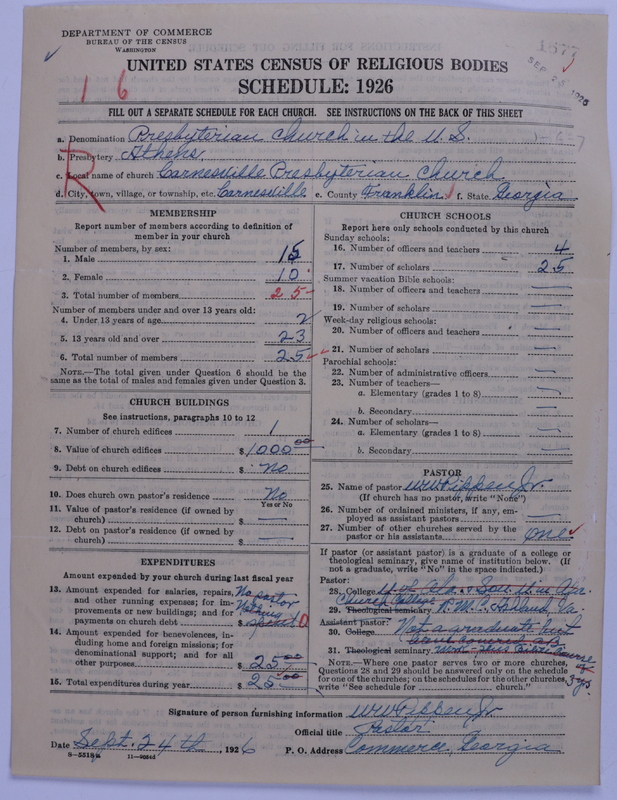 DEPARTMENT OF COMMERCE
BUREAU OF THE CENSUS
WASHINGTON
UNITED STATES CENSUS OF RELIGIOUS BODIES
SCHEDULE: 1926
1677
16
FILL OUT A SEPARATE SCHEDULE FOR EACH CHURCH. SEE INSTRUCTIONS ON THE BACK OF THIS SHEET
a. Denomination Presbyterian Church in the U.S. 1-6-7
b. Presbytery Athens
c. Local name of church Carnesville Presbyterian Church
R
d. City, town, village, or township, etc. Carnesville e. County Franklin f. State Georgia
MEMBERSHIP
Report number of members according to definition of
member in your church
Number of members, by sex:
1. Male 15
2. Female 10
3. Total number of members 25
Number of members under and over 13 years old:
4. Under 13 years of age 2
5. 13 years old and over 23
6. Total number of members 25
NOTE.—The total given under Question 6 should be the
same as the total of males and females given under Question 3.
CHURCH BUILDINGS
See instructions, paragraphs 10 to 12
7. Number of church edifices 1
8. Value of church edifices $ 1000.00
9. Debt on church edifices $ No
10. Does church own pastor's residence No
Yes or No
11. Value of pastor's residence (if owned by
church) $ —
12. Debt on pastor's residence (if owned by
church) $ —
EXPENDITURES
Amount expended by your church during last fiscal year
13. Amount expended for salaries, repairs, No pastor
and other running expenses; for im-
provements or new buildings; and for Nothing
payments on church debt $ spent 0
14. Amount expended for benevolences, in-
cluding home and foreign missions; for
denominational support; and for all
other purposes $ 25.00
15. Total expenditures during year $ 25.00
CHURCH SCHOOLS
Report here only schools conducted by this church
Sunday schools:
16. Number of officers and teachers 4
17. Number of scholars 25
Summer vacation Bible schools:
18. Number of officers and teachers —
19. Number of scholars —
Week-day religious schools:
20. Number of officers and teachers —
21. Number of scholars —
Parochial schools:
22. Number of administrative officers —
23. Number of teachers—
a. Elementary (grades 1 to 8) —
b. Secondary —
24. Number of scholars—
a. Elementary (grades 1 to 8) —
b. Secondary —
PASTOR
25. Name of pastor W W Pippen Jr.
(If church has no pastor, write "None")
26. Number of ordained ministers, if any, em-
ployed as assistant pastors —
27. Number of other churches served by the
pastor or his assistants one
If pastor (or assistant pastor) is a graduate of a college or
theological seminary, give name of institution below. (If
not a graduate, write "No" in the space indicated.)
Pastor:
28. College U of Ala.
29. Theological seminary Va.
Assistant pastor: Not a graduate but
30. College
31. Theological seminary
3 yrs.
NOTE.—Where one pastor serves two or more churches,
Questions 28 and 29 should be answered only on the schedule
for one of the churches; on the schedules for the other churches,
write "See schedule for church."
Signature of person furnishing information W W Pippen Jr
Official title Pastor
Date Sept. 24th, 1926 P. O. Address Commerce, Georgia